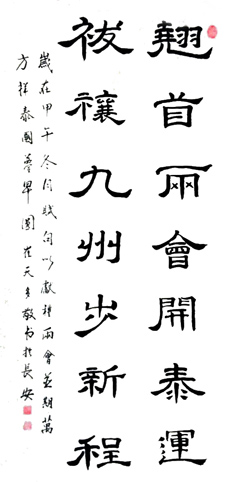 翹首兩會開泰運
祓禳九州步新程
歲在甲午冬月賦句以獻兩會並期萬
方祥泰國夢早圓 崔天敬书於長安